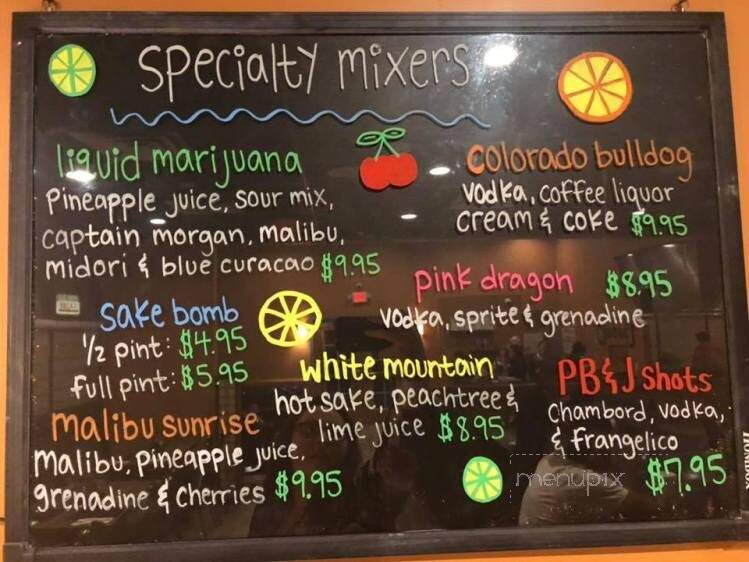 specialty mixers
liquid marijuana
pineapple juice, sour mix,
captain morgan, malibu,
midori & blue curacao $9.95
colorado bulldog
vodka, coffee liquor
cream & coke $9.95
pink dragon $8.95
vodka, sprite & grenadine
sake bomb
1/2 pint: $4.95
full pint: $5.95
white mountain
hot sake, peachtree &
lime juice $8.95
PB&J shots
chambord, vodka,
& frangelico
$7.95
malibu sunrise
malibu, pineapple juice,
grenadine & cherries $9.95
menupix